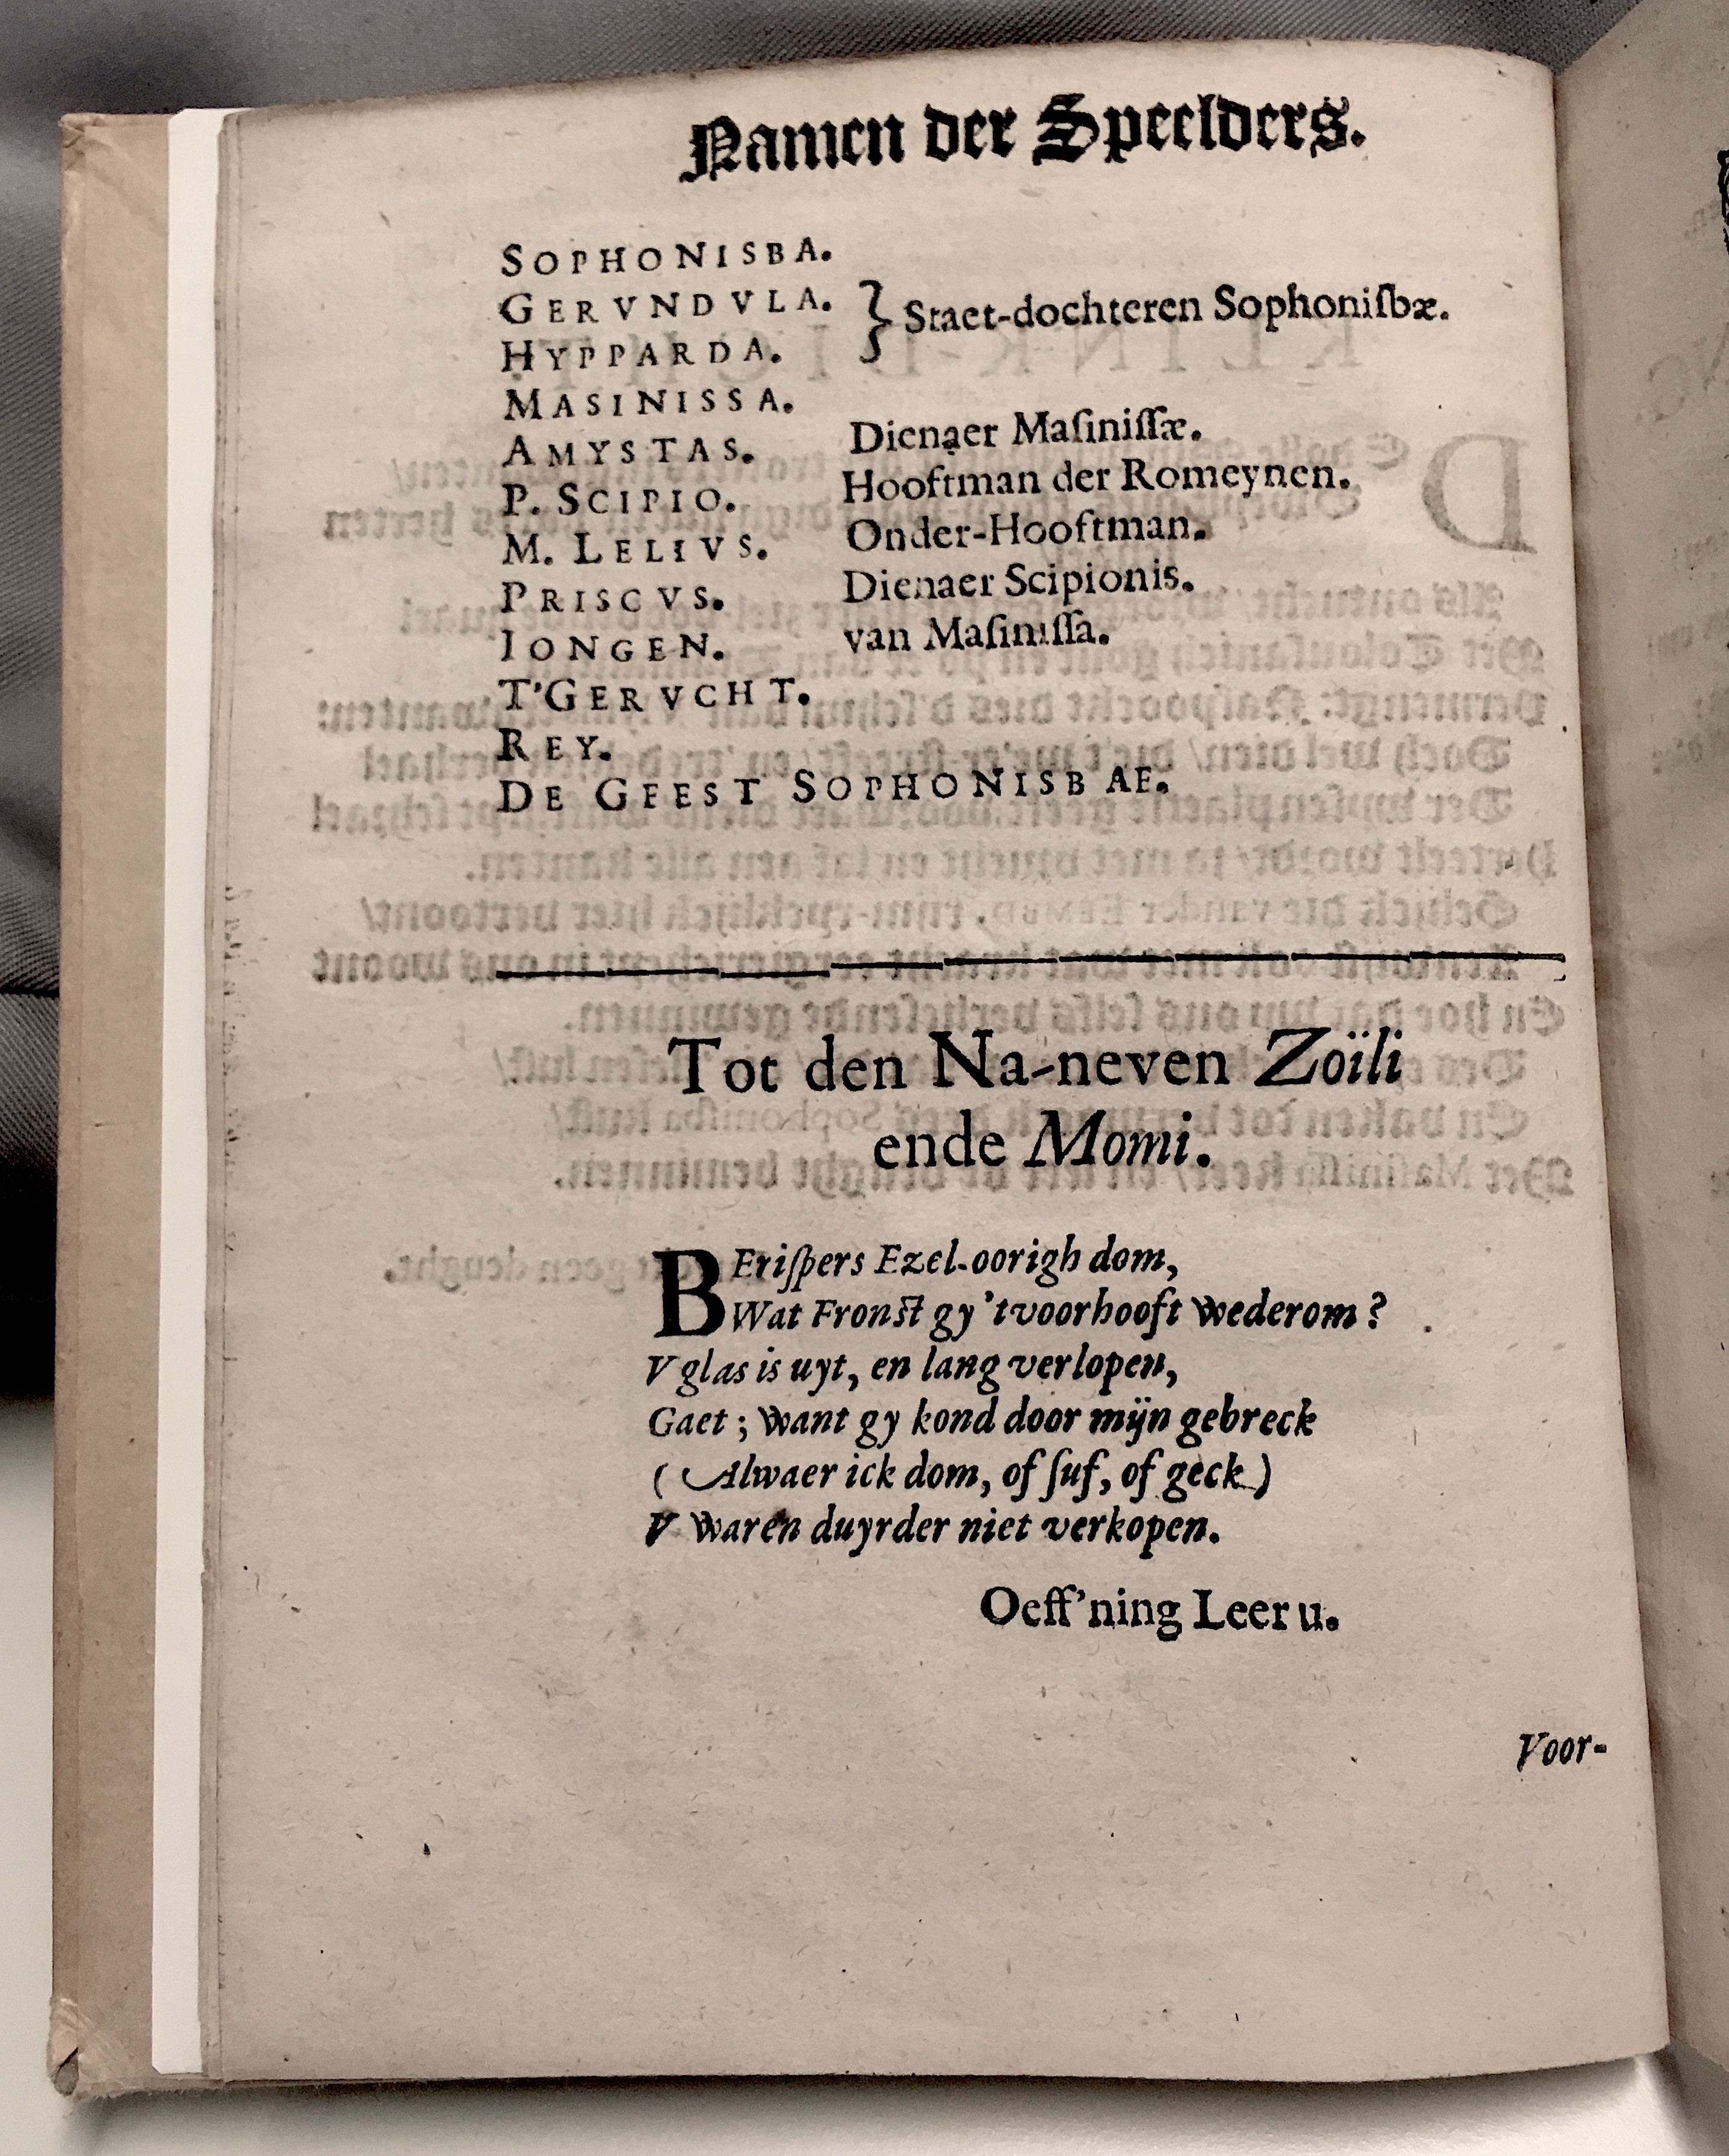 Namen der Speelders.
SOPHONISBA.
GERVNDVLA. } Staet-dochteren Sophoniſbæ.
HYPPARDA.
MASINISSA.
AMYSTAS. Dienaer Maſiniſſæ.
P. SCIPIO. Hooftman der Romeynen.
M. LELIVS. Onder-Hooftman.
PRISCVS. Dienaer Scipionis.
IONGEN. van Maſiniſſa.
T'GERVCHT.
REY.
DE GEEST SOPHONISBAE.
Tot den Na-neven Zoïli
ende Momi.
BEriſpers Ezel-oorigh dom,
Wat Fronſt gy 'tvoorhooft wederom?
V glas is uyt, en lang verlopen,
Gaet; want gy kond door mijn gebreck
(Alwaer ick dom, of ſuf, of geck)
V waren duyrder niet verkopen.
Oeff'ning Leer u.
Voor-